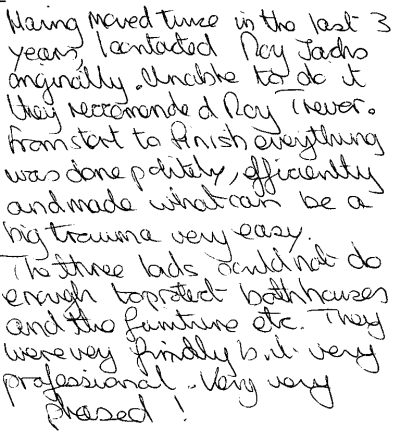 Having moved twice in the last 3
years, I contacted Roy Jacks
originally. Unable to do it
they recommended Roy Trevor.
From start to finish everything
was done politely, efficiently
and made what can be a
big trauma very easy.
The three lads could not do
enough to protect both houses
and the furniture etc. They
were very friendly but very
professional. Very very
pleased!